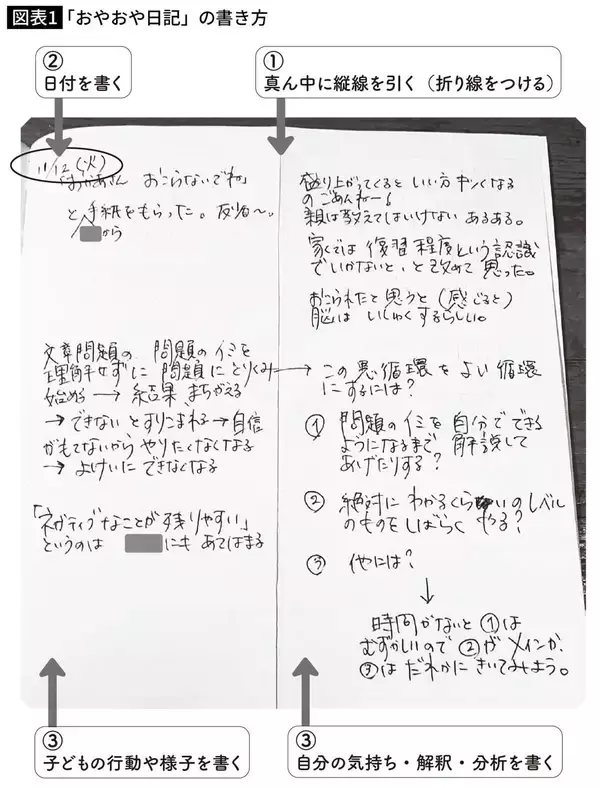 図表1 「おやおや日記」の書き方
②
日付を書く
①
真ん中に縦線を引く（折り線をつける）
11/12(火)
「おかあさん おこらないでね」
と手紙をもらった。反省〜。
から
文章問題の、問題のイミを
理解せずに問題にとりくみ
始める → 結果、まちがえる
→ できないとすりこまれる → 自信
がもてないからやりたくなくなる
→ よけいにできなくなる
「ネガティブなことが残りやすい」
というのは にもあてはまる
盛り上がってくるといい方キツくなる
のごめんねー！
親は教えてはいけないあるある。
家では復習程度という認識
でいかないと、と改めて思った。
おこられたと思うと（感じると）
脳はいしゅくするらしい。
→ この悪循環をよい循環
にするには？
① 問題のイミを自分でできる
ようになるまで解説して
あげたりする？
② 絶対にわかるくらいのレベル
のものをしばらくやる？
③ 他には？
↓
時間がないと①は
むずかしいので②がメインか、
③はだれかにきいてみよう。
③
子どもの行動や様子を書く
③
自分の気持ち・解釈・分析を書く